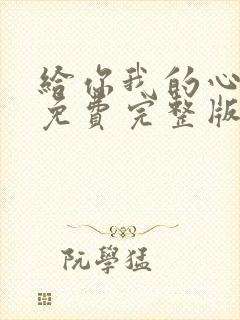 給你我的心
免費完整版
阮學猛